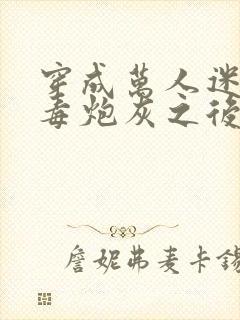 穿成萬人迷
毒炮灰之後
詹妮弗麦卡錫